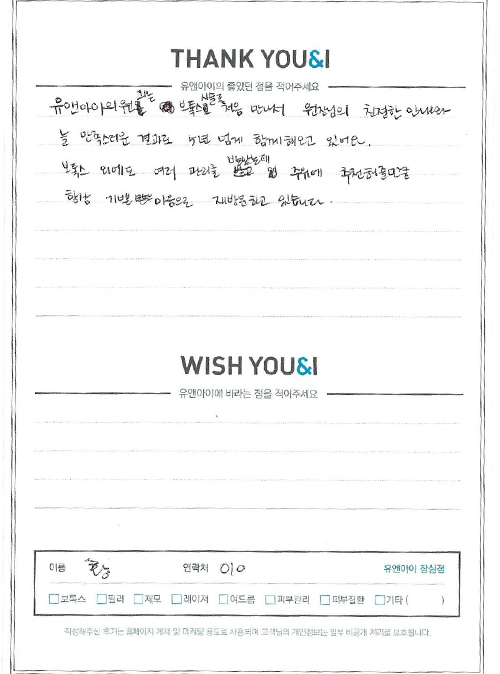 THANK YOU&I
유앤아이의 좋았던 점을 적어주세요
유앤아이의원과는 보톡스 시술로 처음 만나서 원장님의 친절한 안내와
늘 만족스러운 결과로 넘게 함께해오고 있어요.
보톡스 외에도 여러 관리를 받았는데 주위에 추천해줄만큼
항상 기쁜 마음으로 재방문하고 있습니다.
WISH YOU&I
유앤아이에 바라는 점을 적어주세요
이름 연락처 010 유앤아이 잠실점
보톡스 필러 제모 레이저 여드름 피부관리 피부질환 기타 ( )
작성해주신 후기는 홈페이지 게재 및 마케팅 용도로 사용되며 고객님의 개인정보는 일부 비공개 처리로 보호됩니다.